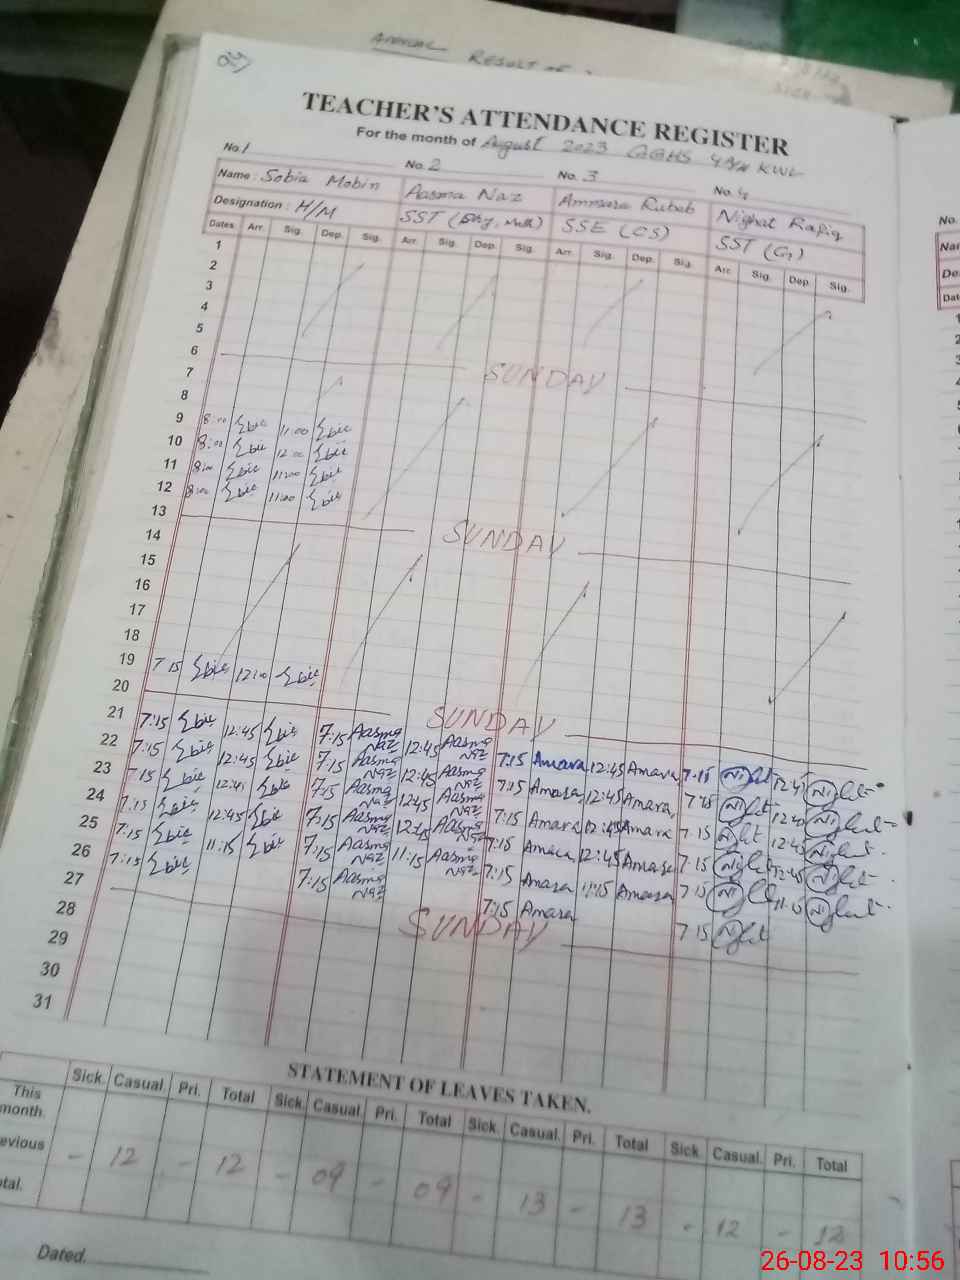 24
ANNUAL RESULT OF
TEACHER'S ATTENDANCE REGISTER
For the month of August 2023 GGHS KWL
No. 1 No. 2 No. 3 No. 4
Name : Sobia Mobin Aasma Naz Ammara Rubab Nighat Rafiq
Designation : H/M SST (Phy, Math) SSE (CS) SST (G)
Dates Arr. Sig. Dep. Sig. Arr. Sig. Dep. Sig. Arr. Sig. Dep. Sig. Arr. Sig. Dep. Sig.
1
2
3
4
5
6 SUNDAY
7
8
9 8:00 11:00
10 8:00 12:00
11 8:00 11:00
12 8:00 11:00
13 SUNDAY
14
15
16
17
18
19 7:15 12:00
20 SUNDAY
21 7:15 12:45 7:15 Aasma Naz 12:45 Aasma Naz 7:15 Amara 12:45 Amara 7:15 Night 12:45 Night
22 7:15 12:45 7:15 Aasma Naz 12:45 Aasma Naz 7:15 Amara 12:45 Amara 7:15 Night 12:45 Night
23 7:15 12:45 7:15 Aasma Naz 12:45 Aasma Naz 7:15 Amara 12:45 Amara 7:15 Night 12:45 Night
24 7:15 12:45 7:15 Aasma Naz 12:45 Aasma Naz 7:15 Amara 12:45 Amara 7:15 Night 12:45 Night
25 7:15 11:15 7:15 Aasma Naz 11:15 Aasma Naz 7:15 Amara 11:15 Amara 7:15 Night 11:15 Night
26 7:15 7:15 Aasma Naz 7:15 Amara 7:15 Night
27 SUNDAY
28
29
30
31
STATEMENT OF LEAVES TAKEN.
Sick. Casual. Pri. Total Sick. Casual. Pri. Total Sick. Casual. Pri. Total Sick. Casual. Pri. Total
This month.
evious - 12 - 12 - 09 - 09 - 13 - 13 - 12 - 12
tal.
Dated.
No.
Nam
De
Dat
26-08-23 10:56